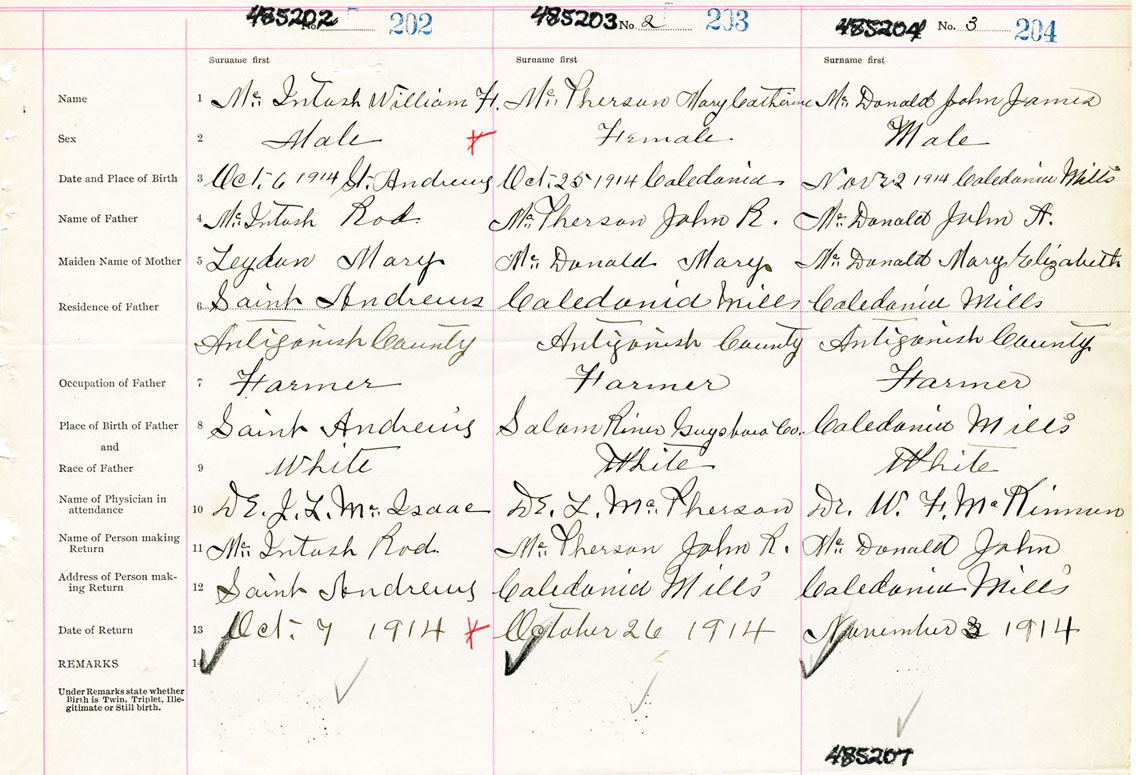 485202 No. 202 485203 No. 2 203 485204 No. 3 204
Surname first Surname first Surname first
Name 1 Mc Intosh William H. Mc Pherson Mary Catherine Mc Donald John James
Sex 2 Male Female Male
Date and Place of Birth 3 Oct. 6 1914 St. Andrews Oct. 25 1914 Caledonia Nov 2 1914 Caledonia Mills
Name of Father 4 Mc Intosh Rod. Mc Pherson John R. Mc Donald John A.
Maiden Name of Mother 5 Leydon Mary Mc Donald Mary Mc Donald Mary Elizabeth
Residence of Father 6 Saint Andrews Caledonia Mills Caledonia Mills
Antigonish County Antigonish County Antigonish County
Occupation of Father 7 Farmer Farmer Farmer
Place of Birth of Father 8 Saint Andrews Salom River Guysboro Co. Caledonia Mills
and
Race of Father 9 White White White
Name of Physician in
attendance 10 Dr. J. L. Mc Isaac Dr. L. Mc Pherson Dr. W. F. McKinnon
Name of Person making
Return 11 Mc Intosh Rod. Mc Pherson John R. Mc Donald John
Address of Person mak-
ing Return 12 Saint Andrews Caledonia Mills Caledonia Mills
Date of Return 13 Oct. 7 1914 October 26 1914 November 3 1914
REMARKS 14
Under Remarks state whether
Birth is Twin, Triplet, Ille-
gitimate or Still birth.
485207